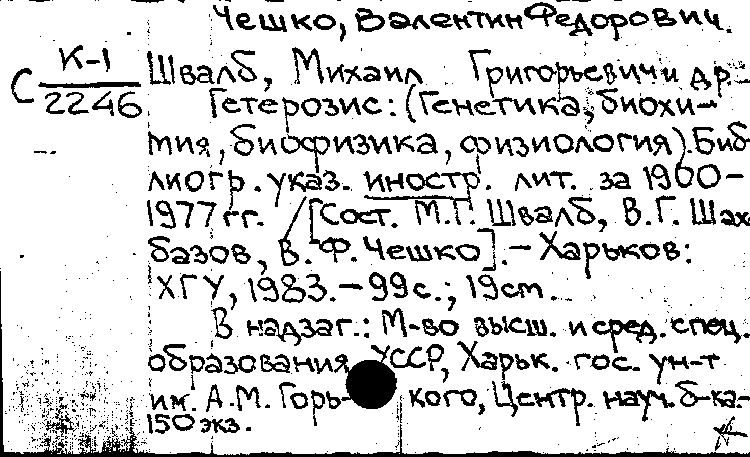 Чешко, Валентин Федорович.
К-1
С 2246
Швалб, Михаил Григорьевич и др.
Гетерозис: (Генетика, биохи-
мия, биофизика, физиология). Биб-
лиогр. указ. иностр. лит. за 1900-
1977 гг. / [Сост. М.Г. Швалб, В.Г. Шах-
базов, В.Ф. Чешко]. - Харьков:
ХГУ, 1983. - 99 с.; 19 см.
В надзаг.: М-во высш. и сред. спец.
образования УССР, Харьк. гос. ун-т
им. А.М. Горь- кого, Центр. науч. б-ка.-
150 экз.